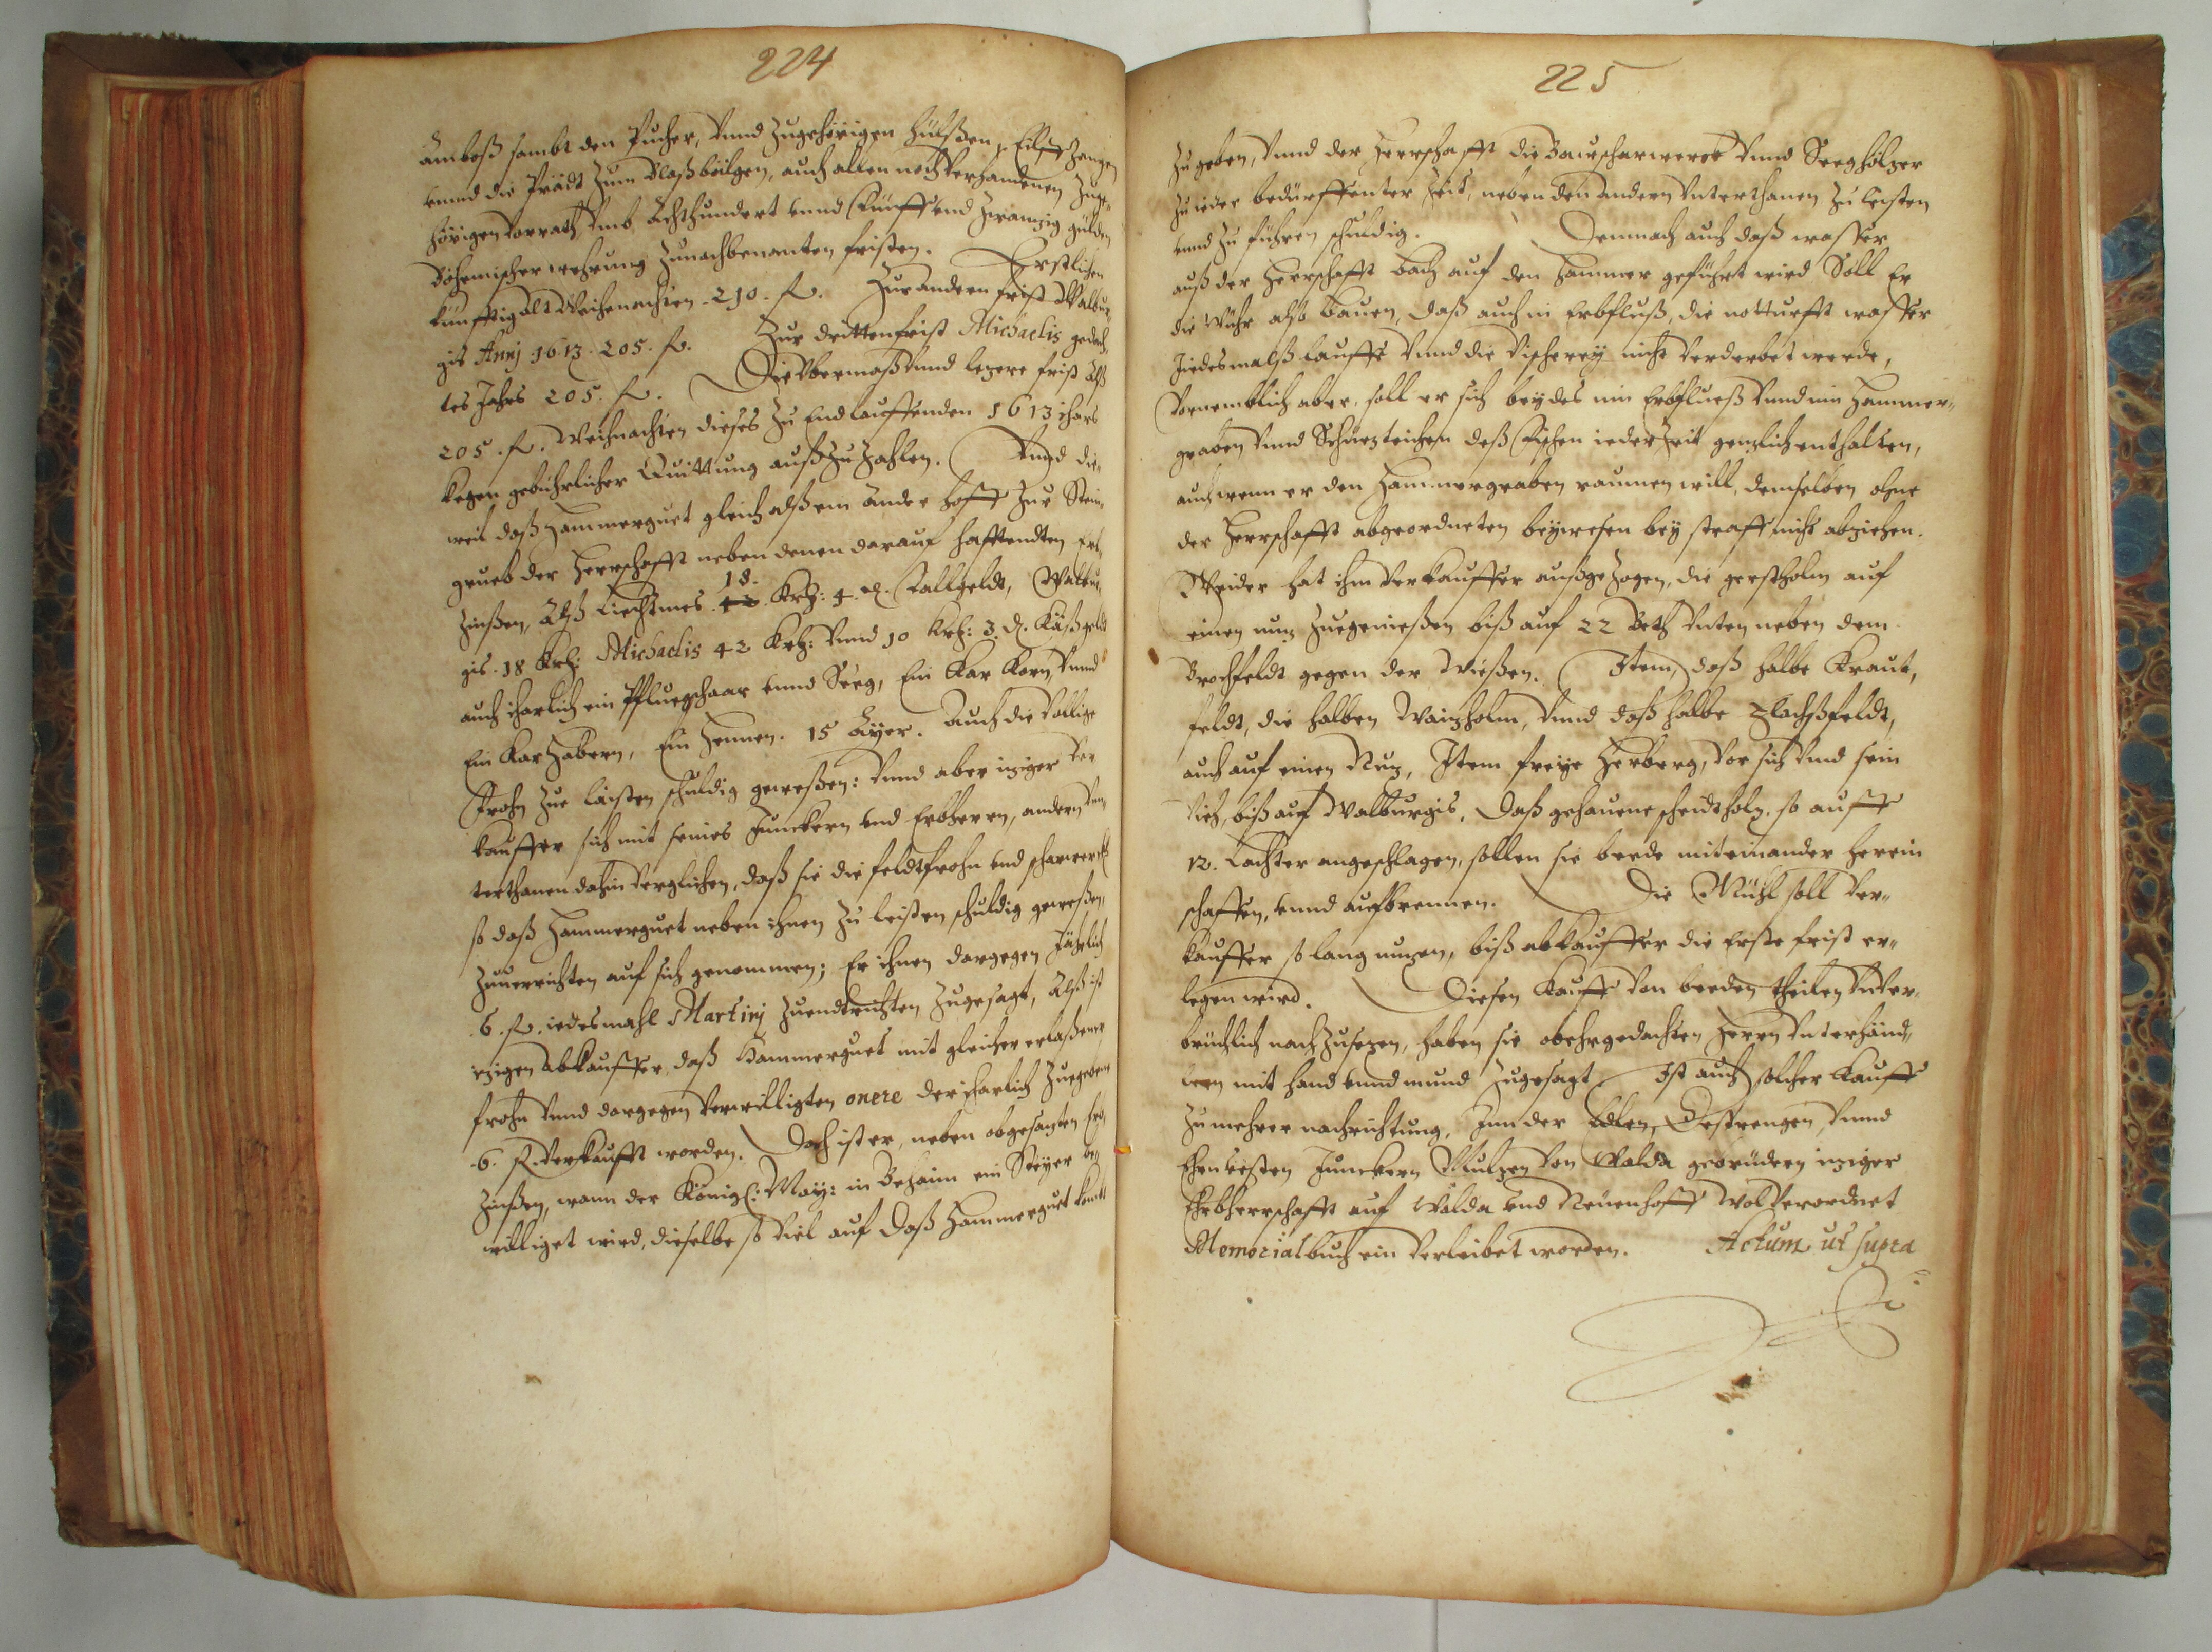 224
Amboß sambt den Pucher, vnnd zugehörigen hülßen, Eilff Zangen
vnnd die Prädt zum Blaßbälgen, auch allen noch verhandenen Zuge-
hörigen Vorrath, vmb Achthundert vnnd Fünff vnd Zwanzig gülden
Böhemischer wehrung Zunachbenanten fristen. Erstlichen
künfftig alt Weihenachten. 210. fl. Zur andern frist Walbur-
gis Annj 1613. 205. fl. Zur drittenfrist Michaelis gedach-
tes Jahrs 205. fl. Die Vbermaß vnnd lezere frist Alß
205. fl. Weihnachten dieses zu End lauffenden 1613 ihars
kegen gebührlicher Quittung außzuzahlen. Vnnd die-
weil daß Hammerguet gleich alß ein Ander hoff zur Stein-
grueb der Herrschafft neben denen darauf hafftendten Erb-
zinßen, Alß Liechtmes 18. Krz: 4. d. Fallgeldt, Walbur-
gis. 18 Krz: Michaelis 42 Krz: vnnd 10 Krz: 3. d. Käßgeldt
auch iharlich ein Pfluegschaar vnnd Seeg, Ein Kar Korn, vnnd
Ein Kar Habern, Ein Hennen. 15 Ayer. Auch die völlige
Frohn zue läisten schuldig geweßen: Vnnd aber iziger Ver-
kauffer sich mit seines Junckern vnd Erbherrn, andern Vn-
terthanen dahin verglichen, daß sie die feldtfrohn vnd scharwerckh
so daß Hammerguet neben ihnen zu leisten schuldig geweßen,
Zuuerrichten auf sich genommen; Er ihnen dargegen Jährlich
6. fl. iedesmahl Martinj zuendtrichten Zugesagt, Alß ist
izigen abkauffer, daß Hammerguet mit gleicher erlaßener
frohn vnnd dargegen verwilligten onere der iharlich Zuegebenen
6. fl. verkaufft worden. Doch ist er, neben obgesagten Erb-
zinßen, wann der Königl: May: in Behaim ein Steyer be-
williget wird, dieselbe so viel auf daß Hammerguet kombt
225
zu geben, vnnd der Herrschafft die Baurscharwerck vnnd Seeghölzer
zu ieder bedürffenter Zeit, neben den andern Vnterthanen zu leisten
vnnd zu führen schuldig. Demnach auch daß wasser
auß der Herrschafft Bach auf den Hammer geführt wird Soll Er
die Wühr also bauen, daß auch in Erbfluß, die notturfft wasser
Jedesmalß lauffe vnnd die Vischerey nicht verderbet werde,
Vornemblich aber, soll er sich beydes im Erbflueß vnnd im Hammer-
graben vnnd Schürzteichen deß Fischen iederzeit genzlich enthalten,
auch wenn er den Hammergraben raumen will, demselben ohne
der Herrschafft abgeordneten beywesen bey straff nicht abziehen.
Weider hat ihm verkauffer außgezogen, die gerstholm auf
einen nuz zuegenießen biß auf 22 Beth vnten neben dem
Brochfeldt gegen der Wießen. Item, daß halbe Kraut,
feldt, die halben Waizholm, vnnd daß halbe Flachßfeldt,
auch auf einen Nuz, Item freye Herberg, vor sich vnnd sein
vieh, biß auf Walburgis. Daß gehauene scheidtholz. so auff
12. Lachter angeschlagen, sollen sie beede miteinander herein
schaffen, vnnd aufbrennen. Die Mühl soll ver-
kauffer so lang nuzen, biß abkauffer die Erste frist er-
legen wird. Diesen Kauff von beeden theilen vnver-
brüchlich nachzusezen, haben sie obehrgedachten Herrn Vnterhänd-
lern mit hand vnnd mund zugesagt. Ist auch solcher Kauff
zu mehrer nachrichtung, Inn der Edlen, Gestrengen, vnnd
Ehruesten Junckern Mulzen von Walda gebrüdern iziger
Ehrbherrschafft auf Walda vnd Neuenhoff wolverordnet
Memorialbuch ein verleibet worden. Actum ut supra